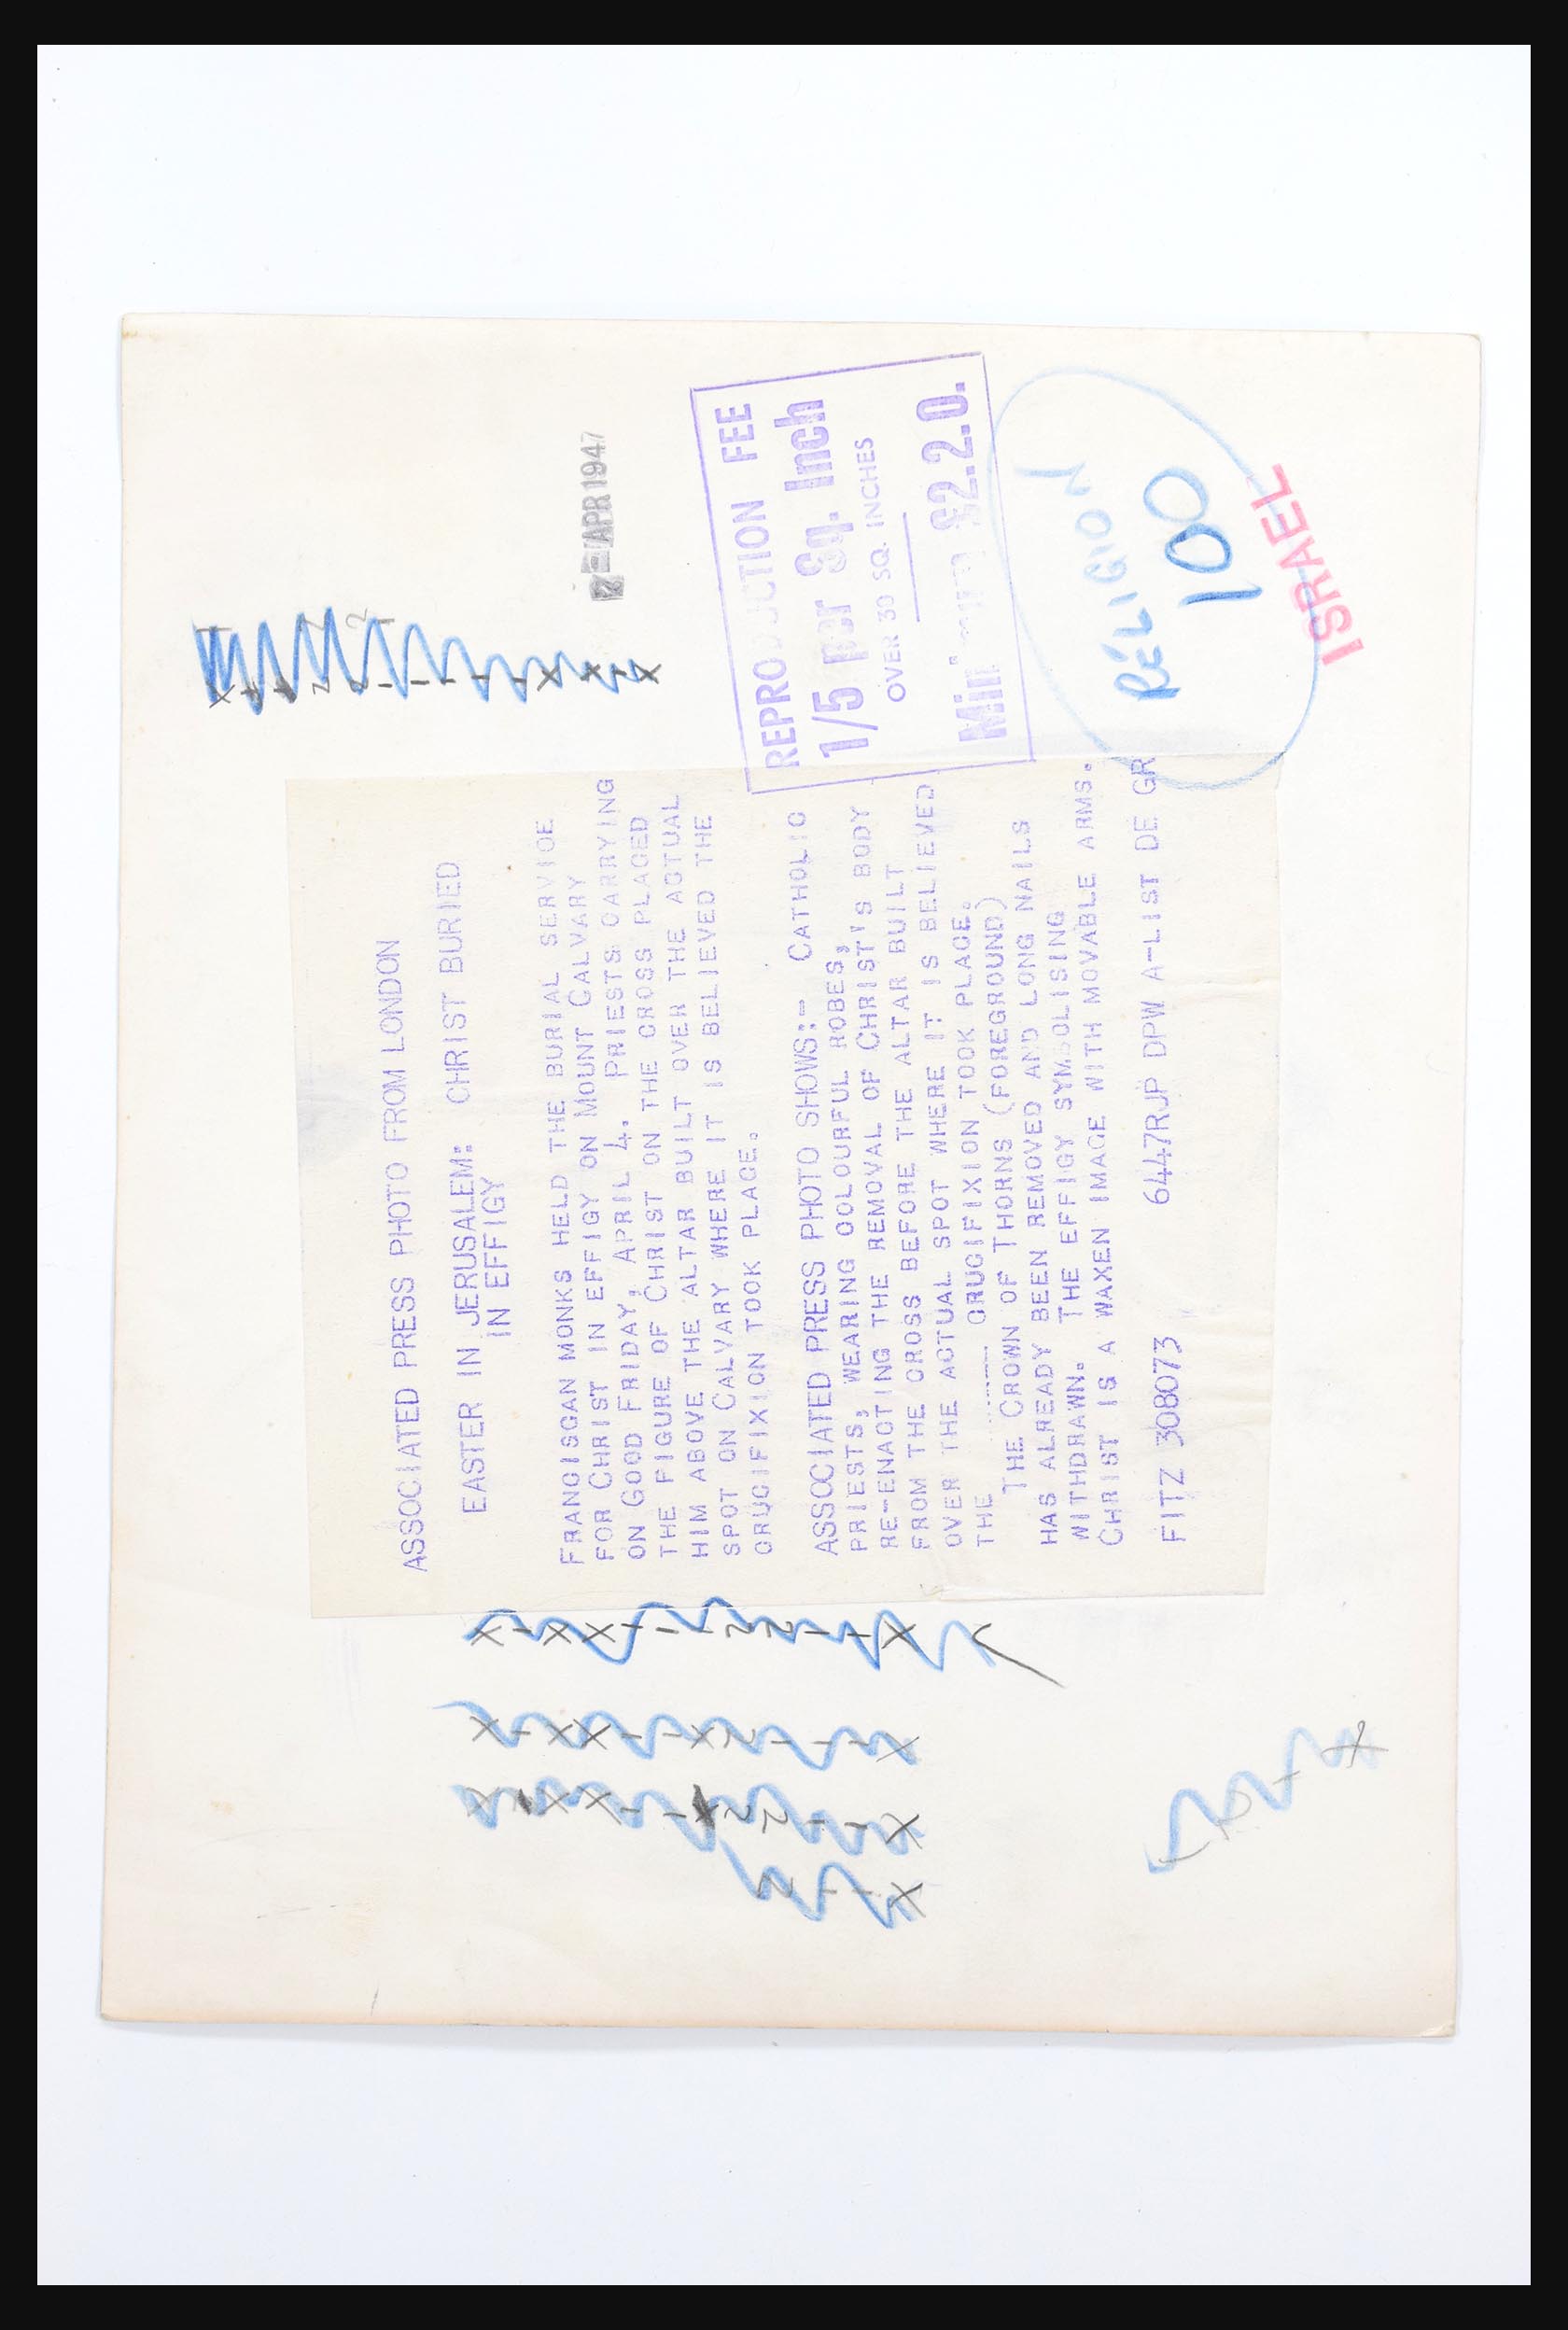 ASSOCIATED PRESS PHOTO FROM LONDON
EASTER IN JERUSALEM: CHRIST BURIED
IN EFFIGY
FRANCISCAN MONKS HELD THE BURIAL SERVICE
FOR CHRIST IN EFFIGY ON MOUNT CALVARY
ON GOOD FRIDAY, APRIL 4. PRIESTS CARRYING
THE FIGURE OF CHRIST ON THE CROSS PLACED
HIM ABOVE THE ALTAR BUILT OVER THE ACTUAL
SPOT ON CALVARY WHERE IT IS BELIEVED THE
CRUCIFIXION TOOK PLACE.
ASSOCIATED PRESS PHOTO SHOWS:- CATHOLIC
PRIESTS, WEARING COLOURFUL ROBES,
RE-ENACTING THE REMOVAL OF CHRIST'S BODY
FROM THE CROSS BEFORE THE ALTAR BUILT
OVER THE ACTUAL SPOT WHERE IT IS BELIEVED
THE CRUCIFIXION TOOK PLACE.
THE CROWN OF THORNS (FOREGROUND)
HAS ALREADY BEEN REMOVED AND LONG NAILS
WITHDRAWN. THE EFFIGY SYMBOLISING
CHRIST IS A WAXEN IMAGE WITH MOVABLE ARMS.
FITZ 308073 6447RJP DPW A-LIST DE GR
APR 1947
REPRODUCTION FEE
1/5 per Sq. Inch
OVER 30 SQ. INCHES
Minimum £2.2.0.
RÉLIGION
100
ISRAEL